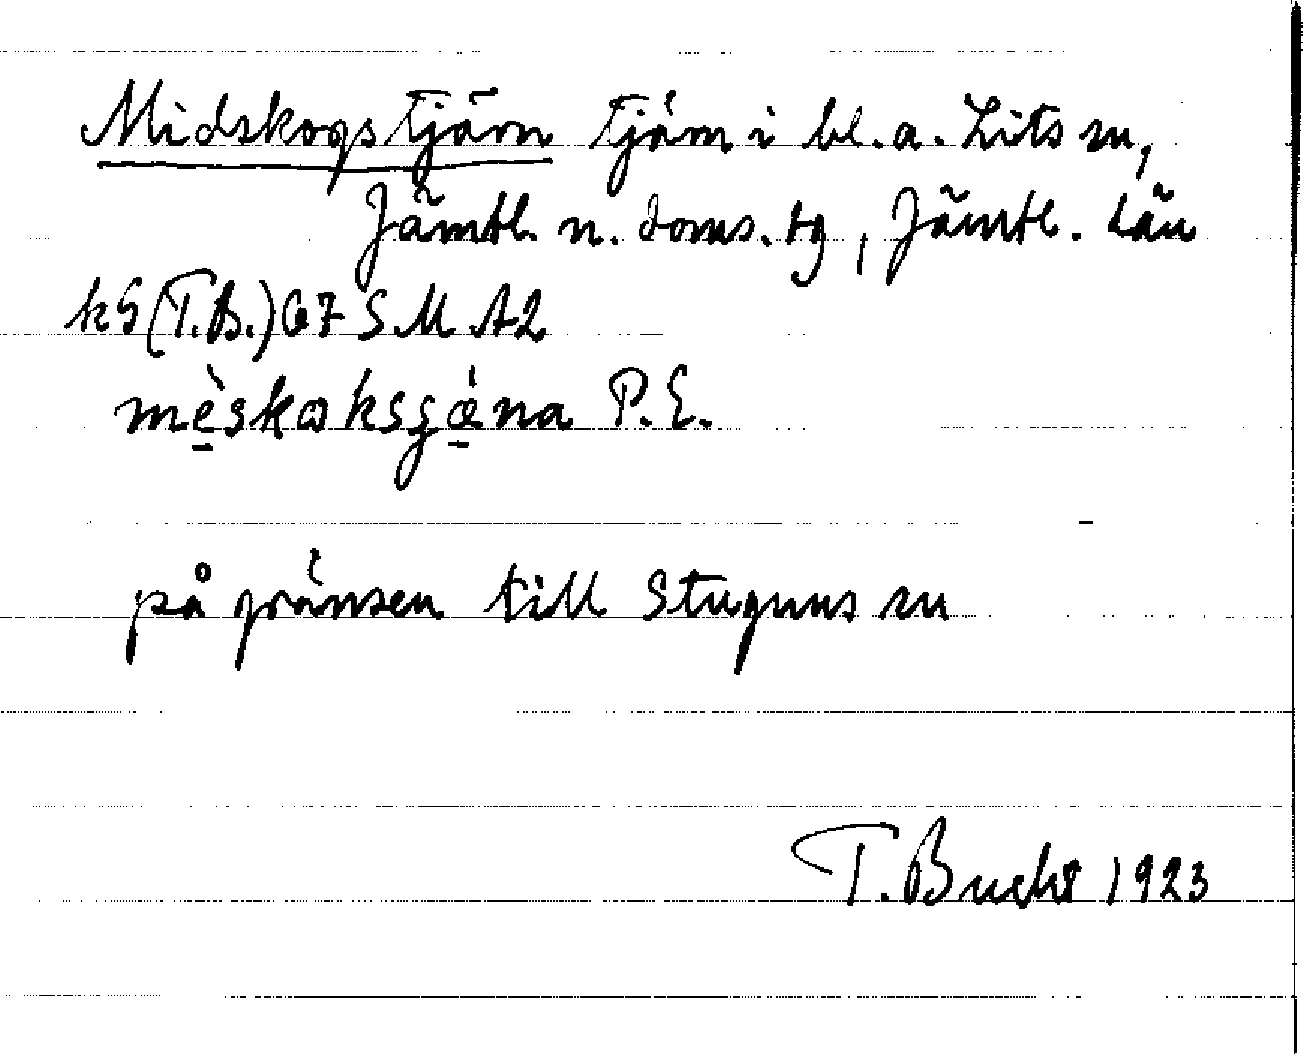 Midskogstjärn tjärn i bl.a. Lits sn,
Jämtl. n. doms. tg, Jämtl. län
kS (T.B.) 67 S M A2
mèskoksʒæ̀na P.E.
på gränsen till Stuguns sn
T. Bucht 1923